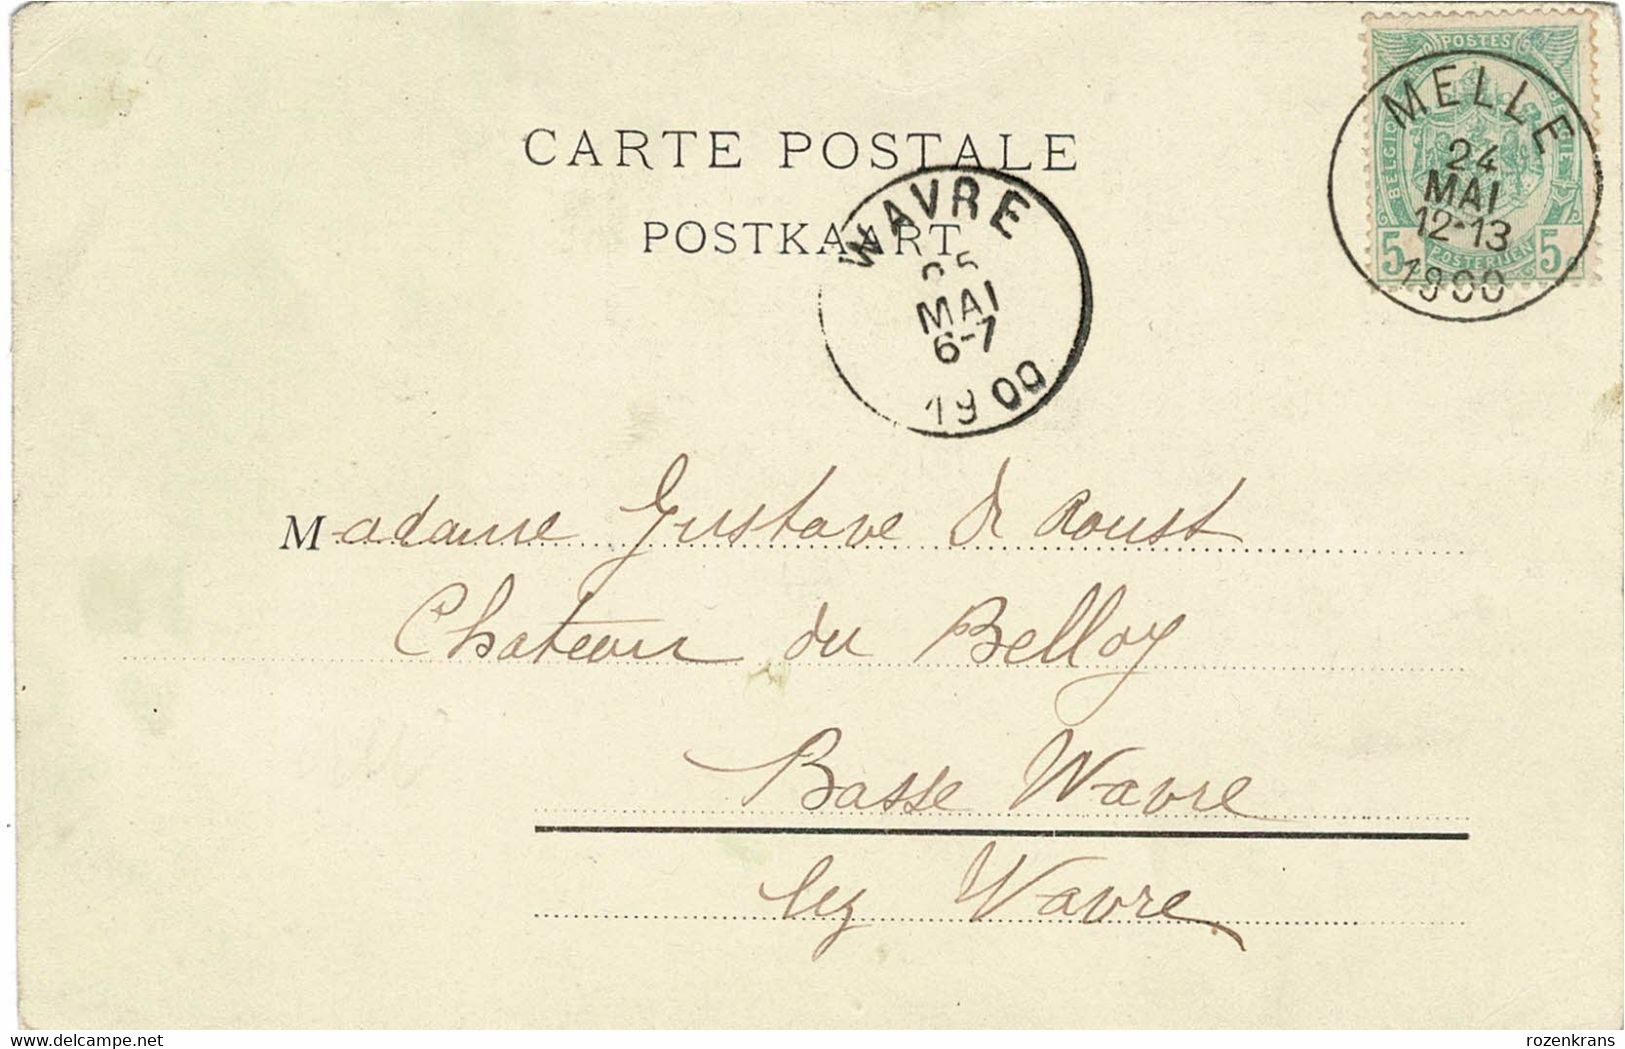 POSTES
BELGIQUE BELGIË
5 POSTERIJEN 5
MELLE
24
MAI
12-13
1900
CARTE POSTALE
POSTKAART
WAVRE
25
MAI
6-7
1900
Madame Gustave de Roust
Chateau du Belloy
Basse Wavre
lez Wavre
www.delcampe.net
rozenkrans